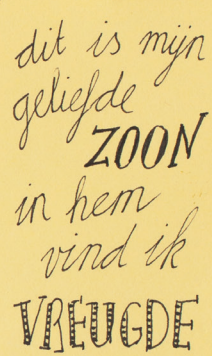 dit is mijn
geliefde
ZOON
in hem
vind ik
VREUGDE